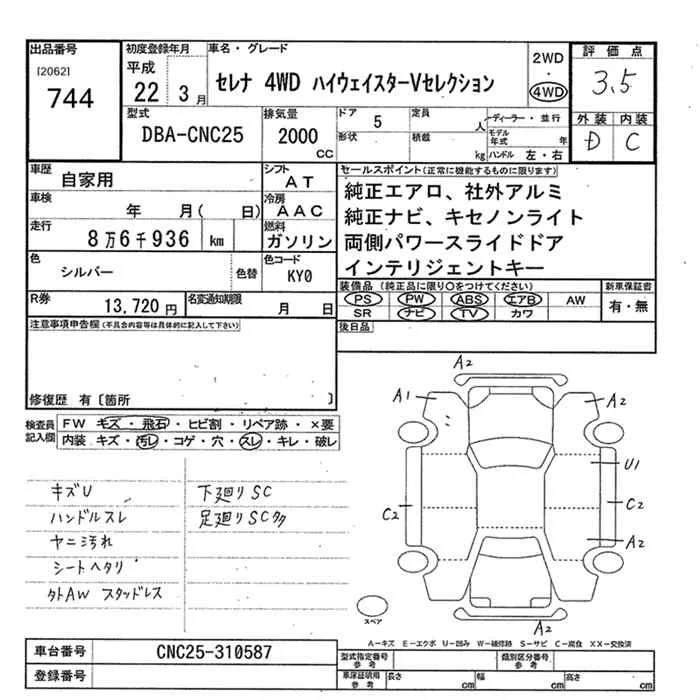 出品番号
[2062]
744
初度登録年月
平成
22 3月
車名・グレード
セレナ 4WD ハイウェイスターVセレクション
2WD
4WD
評価点
3.5
外装 内装
D C
型式
DBA-CNC25
排気量
2000
CC
ドア 5
形状
定員 人
積載 kg
ディーラー・並行
モデル年式 年
ハンドル 左・右
車歴 自家用
シフト AT
車検 年 月( 日)
冷房 AAC
走行 8万6千936 km
燃料 ガソリン
色 シルバー 色替
色コード KY0
R券 13,720円
名変通知期限 月 日
セールスポイント(正常に機能するものに限ります)
純正エアロ、社外アルミ
純正ナビ、キセノンライト
両側パワースライドドア
インテリジェントキー
装備品(純正品に限り○をつけてください)
PS PW ABS エアB AW
SR ナビ TV カワ
新車保証書
有・無
後日品
注意事項申告欄(不具合内容等は具体的に記入して下さい)
修復歴 有〔箇所 〕
検査員記入欄
FW キズ・飛石・ヒビ割・リペア跡・×要
内装 キズ・汚レ・コゲ・穴・スレ・キレ・破レ
キズU
ハンドルスレ
ヤニ汚れ
シートヘタリ
外AW スタッドレス
下廻りSC
足廻りSC多
A2
A1
A2
U1
C2
C2
A2
A2
スペア
A-キズ E-エクボ U-凹み W-補修跡 S-サビ C-腐食 XX-交換済
車台番号 CNC25-310587
登録番号
型式指定番号
参考
類別区分番号
参考
車庫証明用
参考
長さ cm
幅 cm
高さ cm